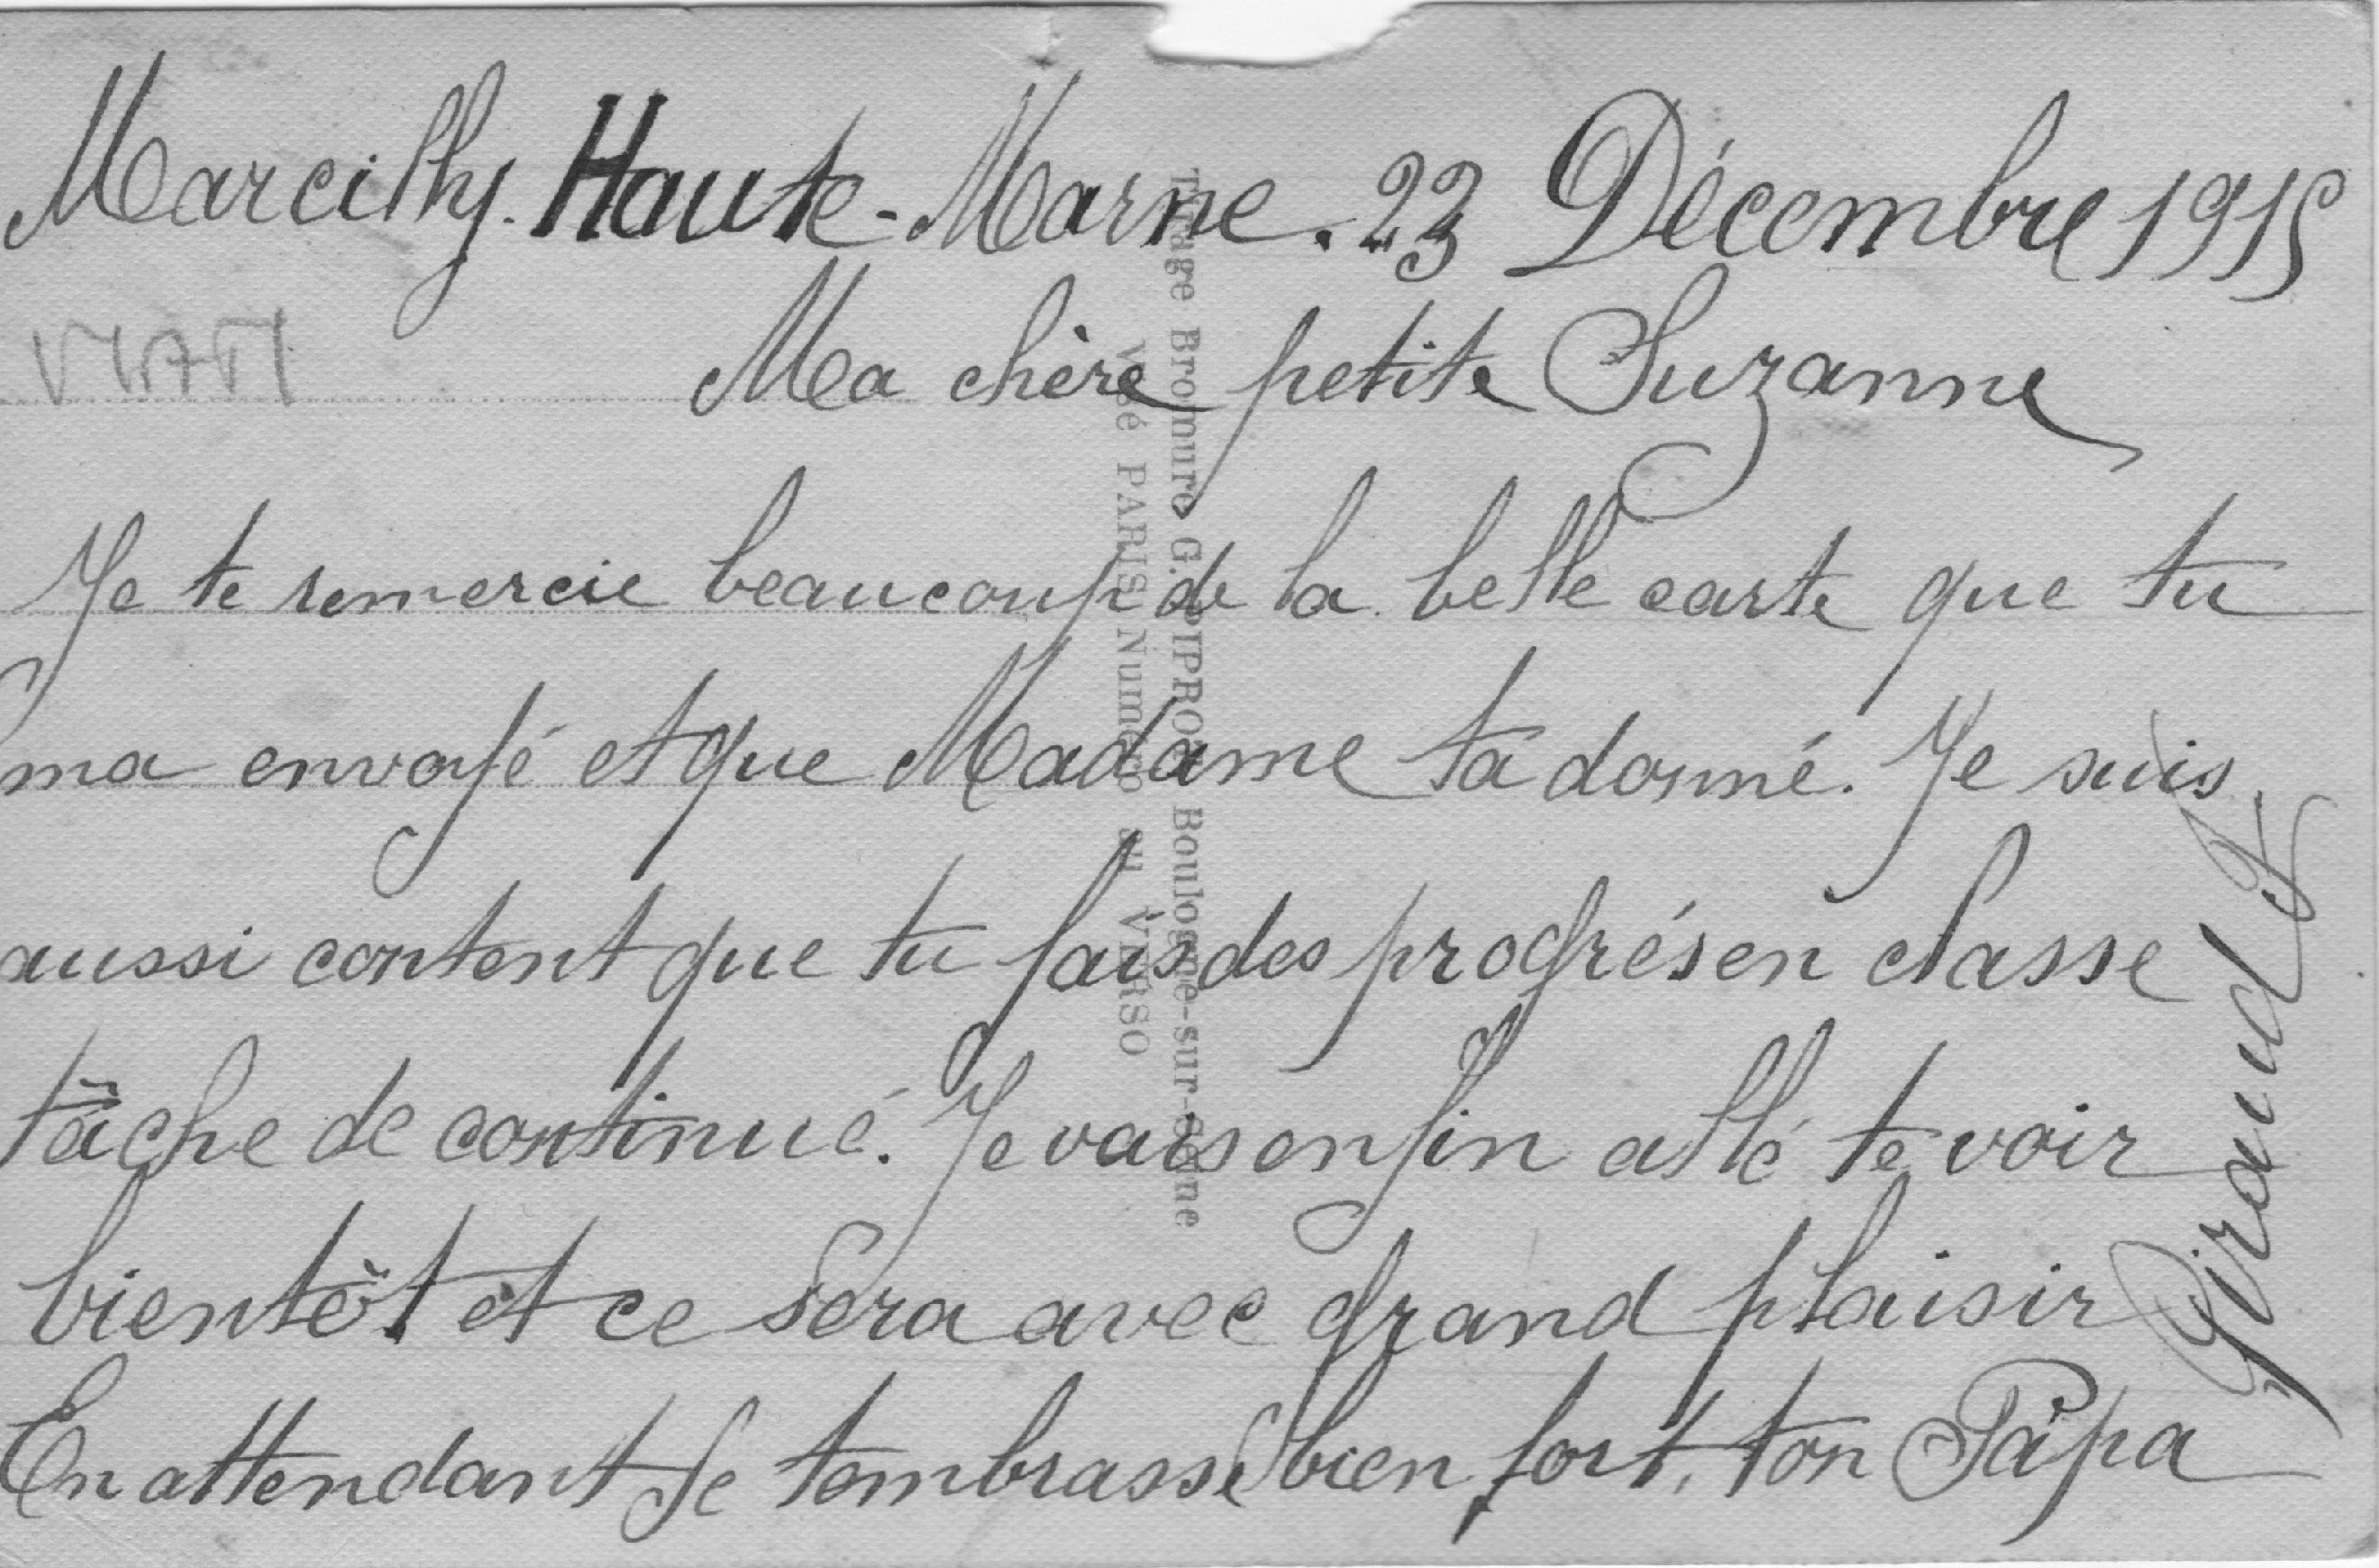 Marcilly. Haute-Marne. 23 Décembre 1915
Ma chère petite Suzanne
Je te remercie beaucoup de la belle carte que tu
ma envoyé et que Madame ta donné. Je suis
aussi content que tu fais des progrés en classe
tâche de continué. Je vais enfin allé te voir
bientôt et ce sera avec grand plaisir
En attendant je tembrasse bien fort, ton Papa
Giraud
Tirage Bromure G. PIPROT Boulogne-sur-Seine
Visé PARIS Numéro au VERSO